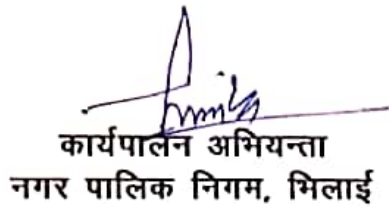 कार्यपालन अभियन्ता
नगर पालिक निगम, भिलाई